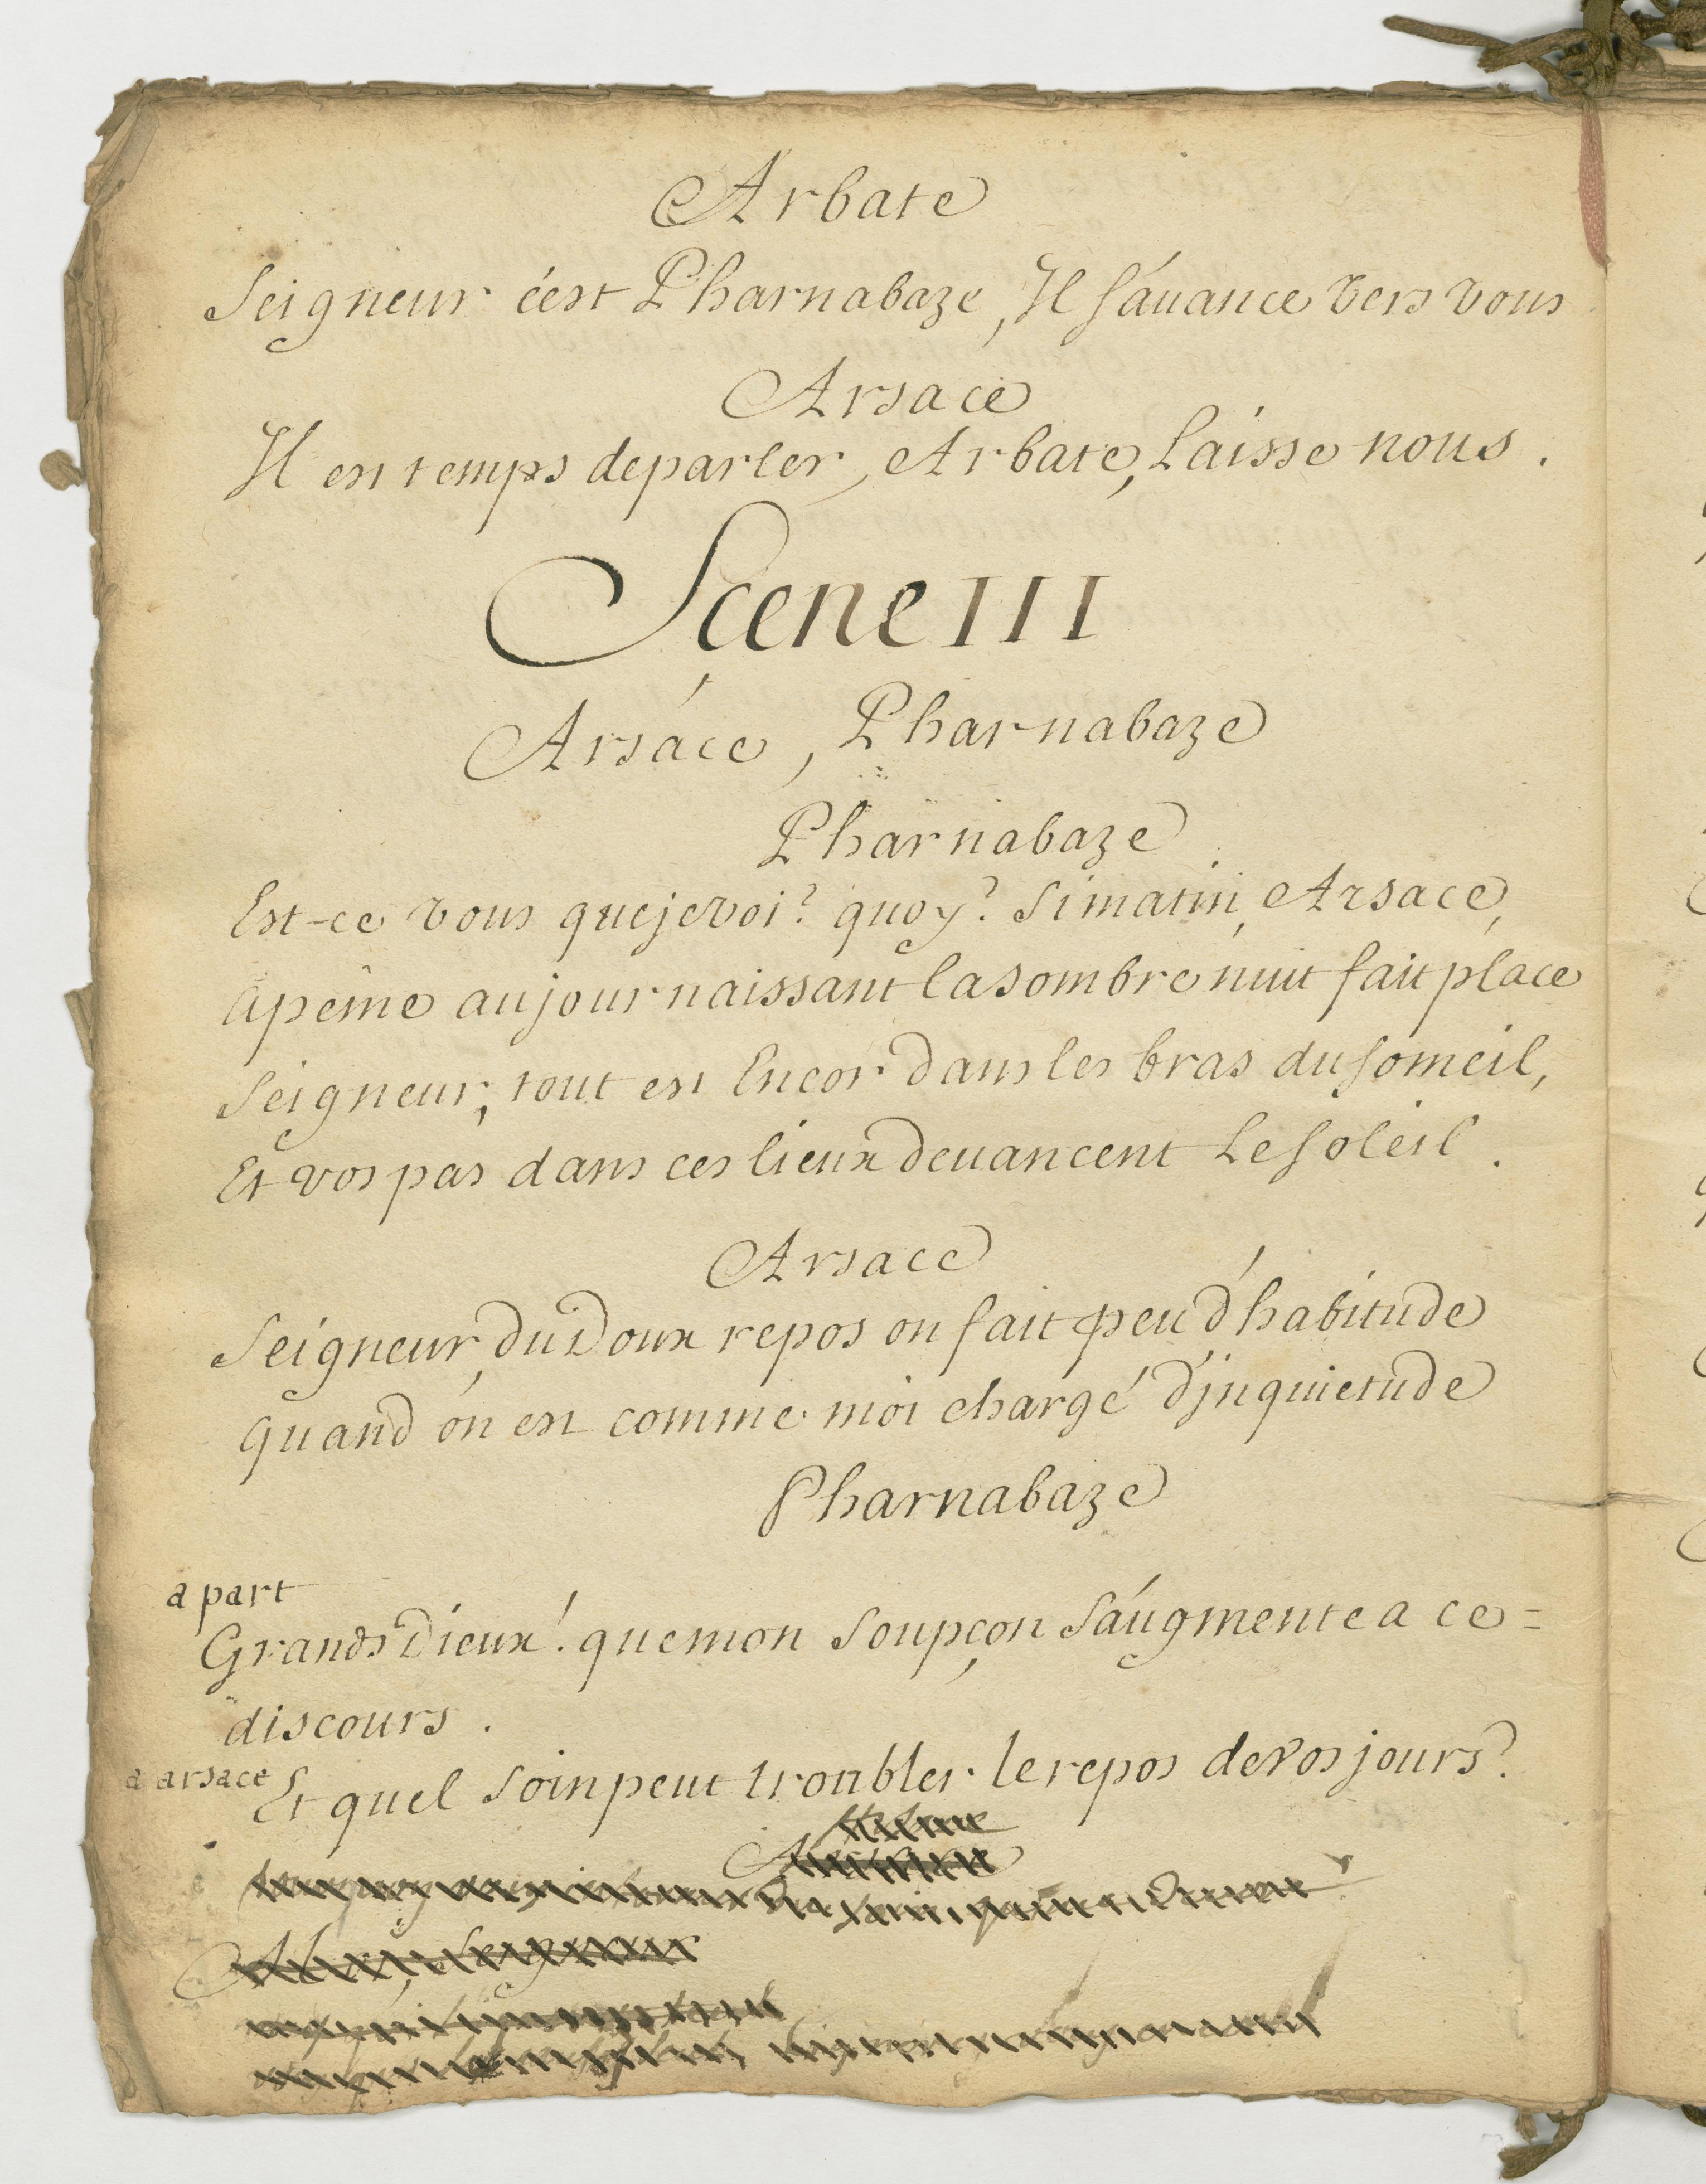 Arbate
Seigneur c'est Pharnabaze, Il s'auance vers vous
Arsace
Il est temps de parler, Arbate, Laisse nous.
Scene III
Arsace, Pharnabaze
Pharnabaze
Est-ce vous que je voi? quoy? Si matin, Arsace,
Apeine au jour naissant la sombre nuit fait place
Seigneur, tout est Encor dans les bras du someil,
Et vos pas dans ces lieux deuancent Le soleil.
Arsace
Seigneur, du Doux repos on fait peu d'habitude
quand on est comme moi chargé d'inquietude
Pharnabaze
a part
Grands Dieux! que mon soupçon s'augmente a ce=
discours.
a arsace Et quel soin peut troubler le repos de vos jours?